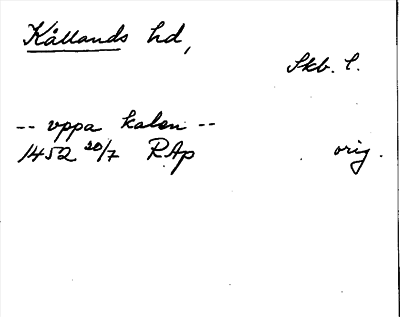 Kållands hd,
Skb. l.
-- vppa kalen --
1452 20/7 RAp orig.